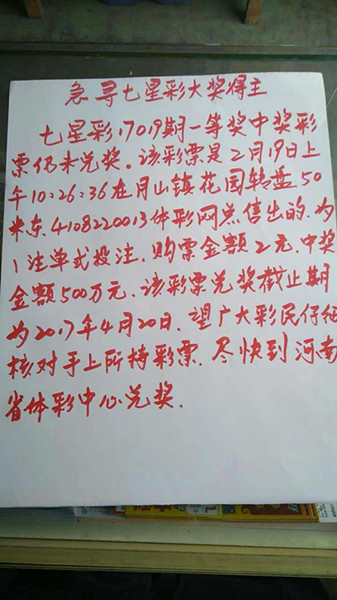 急寻七星彩大奖得主
七星彩17019期一等奖中奖彩
票仍未兑奖。该彩票是2月19日上
午10:26:36在月山镇花园转盘50
米东.4108220013体彩网点售出的.为
1注单式投注.购票金额2元.中奖
金额500万元.该彩票兑奖截止期
为2017年4月20日.望广大彩民仔细
核对手上所持彩票.尽快到河南
省体彩中心兑奖.